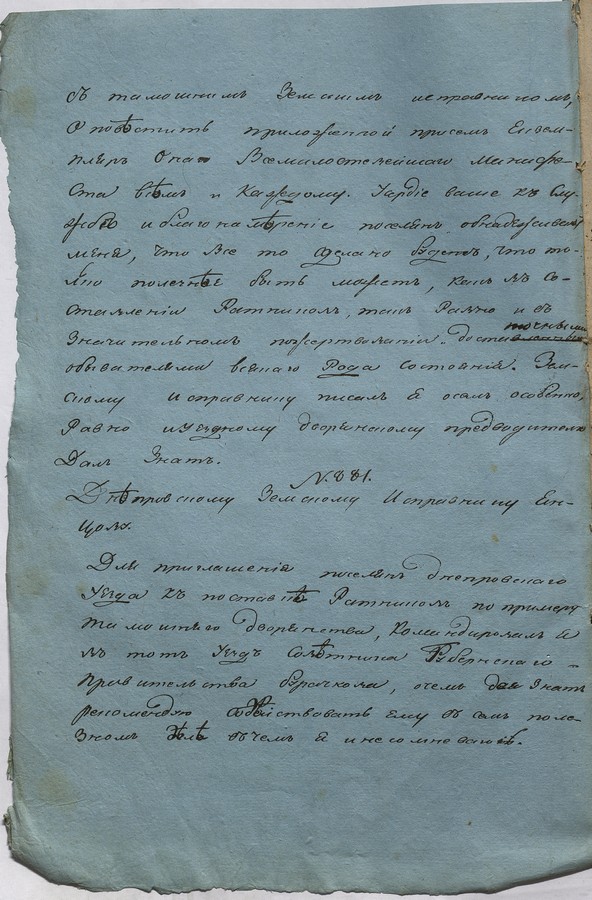 съ тамошнимъ Земскимъ исправникомъ,
Оповѣстить приложенной присемъ Екзем-
пляръ Онаго Всемилостивейшаго Манифе-
ста всѣмъ и Каждому. Усердіе ваше къ Слу-
жбѣ и благонамѣреніе поселянъ обнадеживаютъ
меня, что Все то сделано будетъ, что то-
лко полезнѣе быть можетъ, какъ къ со-
ставленіи Ратниковъ, такъ Равно и въ
Значительномъ пожертвованіи доста точными
обывателями всякаго Рода состоянія. Зем-
скому исправнику писалъ я осемъ особенно,
Равно и уездному дворянскому предводителю
Далъ Знать.
N. 881.
Днѣпровскому Земскому Исправнику
Для приглашенія поселянъ днепровскаго
Уезда къ поставкѣ Ратниковъ по примеру
тамошняго дворянства, Командировалъ я
въ тотъ Уездъ Совѣтника Губернскаго
Правительства очемъ давъ Знать
рекомендую содѣйствовать ему въ семъ поле-
Зномъ дѣлѣ въ чемъ я и несомневаюсь.